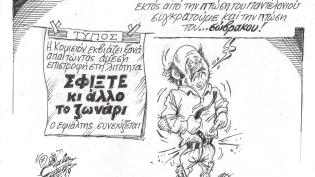 εκτός από την πτώση του παντελονιού
συγκρατούμε και την πτώση
του...σώβρακου!
ΤΥΠΟΣ
Η Κομισιόν εκβιάζει ξανά
απαιτώντας άμεση
επιστροφή στη λιτότητα
ΣΦΙΞΤΕ
κι άλλο
το ζωνάρι
Ο εφιάλτης συνεχίζεται